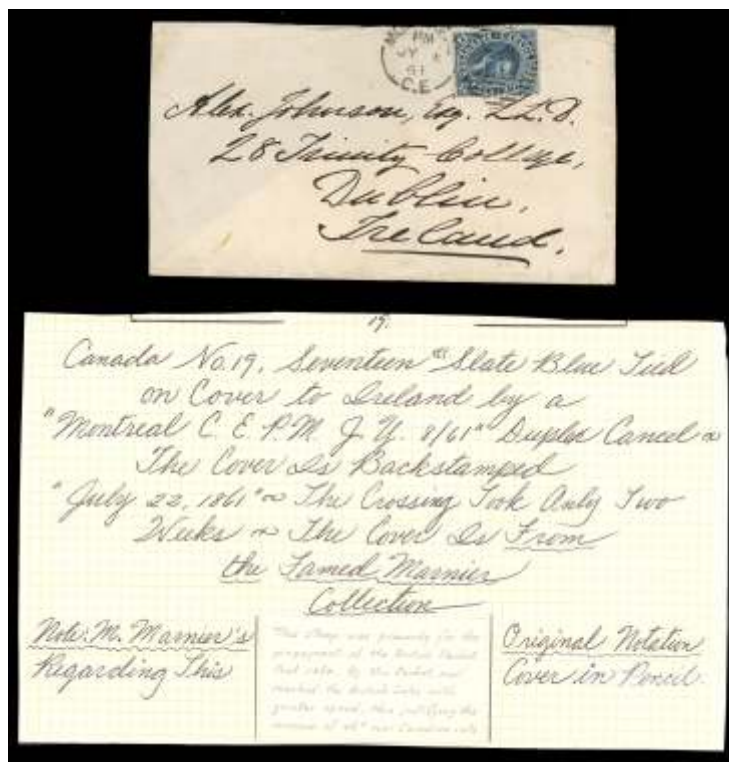 PM
JY
61
C.E
Alex. Johnson, Esq. LL.D.
28 Trinity College,
Dublin,
Ireland.
19.
Canada No. 19. Seventeen ¢ Slate Blue Tied
on Cover to Ireland by a
"Montreal C. E. P.M. J.Y. 8/61" Duplex Cancel ~
The Cover Is Backstamped
"July 22, 1861" ~ The Crossing Took Only Two
Weeks ~ The Cover Is From
the Famed Marnier
Collection
Note: M. Marnier's
Regarding This
This stamp was primarily for the
prepayment of the British Packet
that rate. By this Packet mail
reached the British isles with
greater speed, thus justifying the
over Canadian rate
Original Notation
Cover in Pencil.